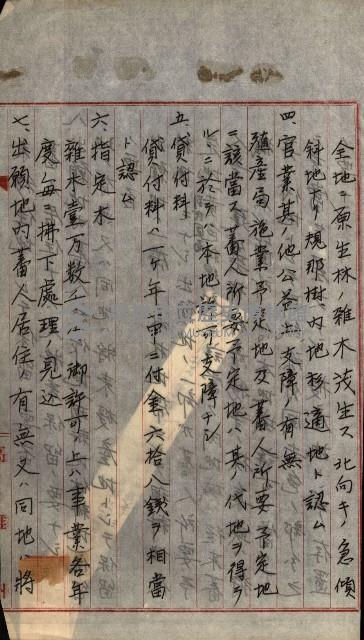 全地ニ原生林ノ雜木茂生ス北向キノ急傾
斜地ナリ規那樹内地杉適地ト認ム
四、官業其ノ他公益上支障ノ有無
殖產局施業予定地及蕃人所要予定地
ニ該當ス蕃人所要予定地ハ其ノ代地ヲ得ラ
ル、ニ於テハ本地 支障ナシ
五、貸付料
貸付料ハ一ケ年一甲ニ付金六拾八錢ヲ相當
ト認ム
六、指定木
雜木壹万数千 御許可ノ上ハ事業各年
度每ニ拂下處理ノ見込
七、出願地内蕃人居住ノ有無又ハ同地ハ將